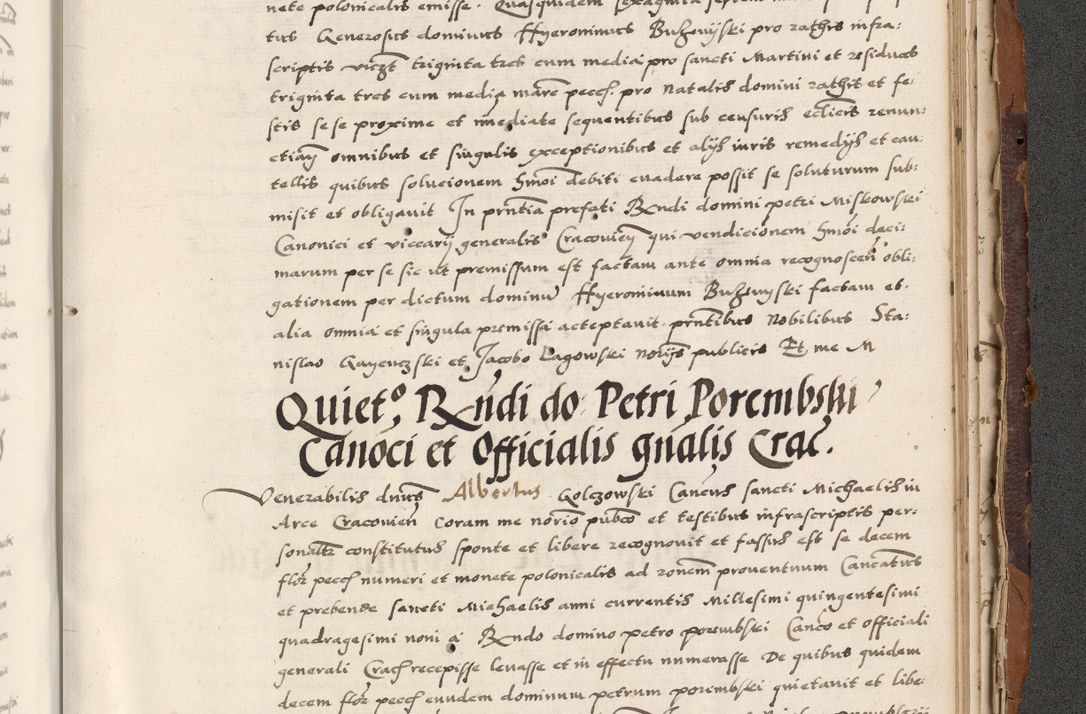 nete polonicalis emisse. Quasquidem sexaginta septem
tus Generosus dominus Hyeronimus Buzovijski pro rathis infra:
scriptis viczt triginta tres cum media pro sancti Martini et residuas
triginta tres cum media marc pecch. pro Natalis domini rathis et fe:
stis sese proxime et imediate sequentibus sub censuris ecclicis renun:
ctians omnibus et singulis exceptionibus et alijs iuris remedijs et cau:
tellis quibus solucionem hmoi debiti euadere possit se soluturum sub:
misit et obligauit In prntia prefati Rndi domini petri Miskowski
Canonici et viccarij generalis Cracovien qui vendicionem hmoi deci:
marum per se sic ut premissum est factam ante omnia recognoscen obli:
gationem per dictum dominu Hyeronimum Buzovyski factam et.
alia omnia et singula premissa acceptauit. prntibus Nobilibus Sta:
nislao Gayenczski et Jacobo Lagowski Norijs publicis Et me M
Quieto, Rndi do Petri Porembski
Canoci et Officialis gnalis Crac.
Venerabilis dnus Albertus Golczowski Cancus sancti Michaelis in
Arce Cracovien Coram me norio pubco et testibus infrascriptis per:
sonaltr constitutus sponte et libere recognovit et fassus est se decem
flor pecch numeri et monete polonicalis ad ronem proventuum Cancatus
et prebende sancti Michaelis anni currentis Millesimi quingentesimi
quadragesimi noni a Rndo domino petro porembski Canco et officiali
generali Crach recepisse leuasse et in effectu numerasse De quibus quidem
decem flor pecch eundem dominum petrum porembski quietauit et libe